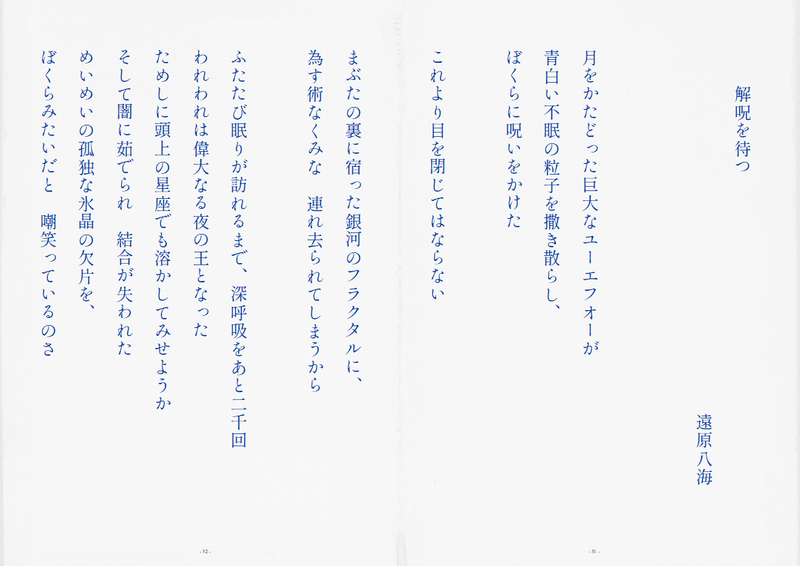 解呪を待つ
遠原八海
月をかたどった巨大なユーエフオーが
青白い不眠の粒子を撒き散らし、
ぼくらに呪いをかけた
これより目を閉じてはならない
- 51 -
まぶたの裏に宿った銀河のフラクタルに、
為す術なくみな　連れ去られてしまうから
ふたたび眠りが訪れるまで、深呼吸をあと二千回
われわれは偉大なる夜の王となった
ためしに頭上の星座でも溶かしてみせようか
そして闇に茹でられ　結合が失われた
めいめいの孤独な氷晶の欠片を、
ぼくらみたいだと　嘲笑っているのさ
- 52 -